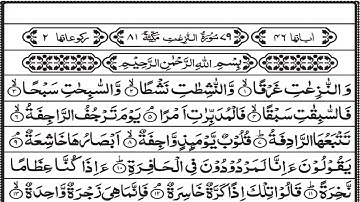 اٰیاتها ۴۶ ۷۹ سُوْرَةُ النّٰزِعٰتِ مَكِّیَّةٌ ۸۱ ركوعاتها ۲
بِسْمِ اللّٰهِ الرَّحْمٰنِ الرَّحِیْمِ
وَ النّٰزِعٰتِ غَرْقًا ۙ۱ وَّ النّٰشِطٰتِ نَشْطًا ۙ۲ وَّ السّٰبِحٰتِ سَبْحًا ۙ۳
فَالسّٰبِقٰتِ سَبْقًا ۙ۴ فَالْمُدَبِّرٰتِ اَمْرًا ۘ۵ یَوْمَ تَرْجُفُ الرَّاجِفَةُ ۙ۶
تَتْبَعُهَا الرَّادِفَةُ ؕ۷ قُلُوْبٌ یَّوْمَىِٕذٍ وَّاجِفَةٌ ۙ۸ اَبْصَارُهَا خَاشِعَةٌ ۘ۹
یَقُوْلُوْنَ ءَاِنَّا لَمَرْدُوْدُوْنَ فِی الْحَافِرَةِ ؕ۱۰ ءَاِذَا كُنَّا عِظَامًا
نَّخِرَةً ؕ۱۱ قَالُوْا تِلْكَ اِذًا كَرَّةٌ خَاسِرَةٌ ۘ۱۲ فَاِنَّمَا هِیَ زَجْرَةٌ وَّاحِدَةٌ ۙ۱۳